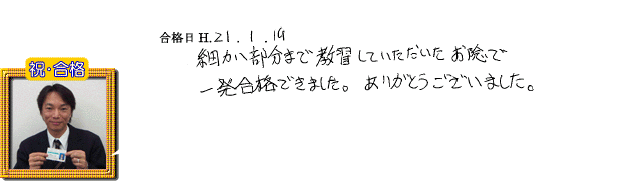 合格日 H.21.1.19
細かい部分まで教習していただいたお陰で
一発合格できました。ありがとうございました。
祝・合格